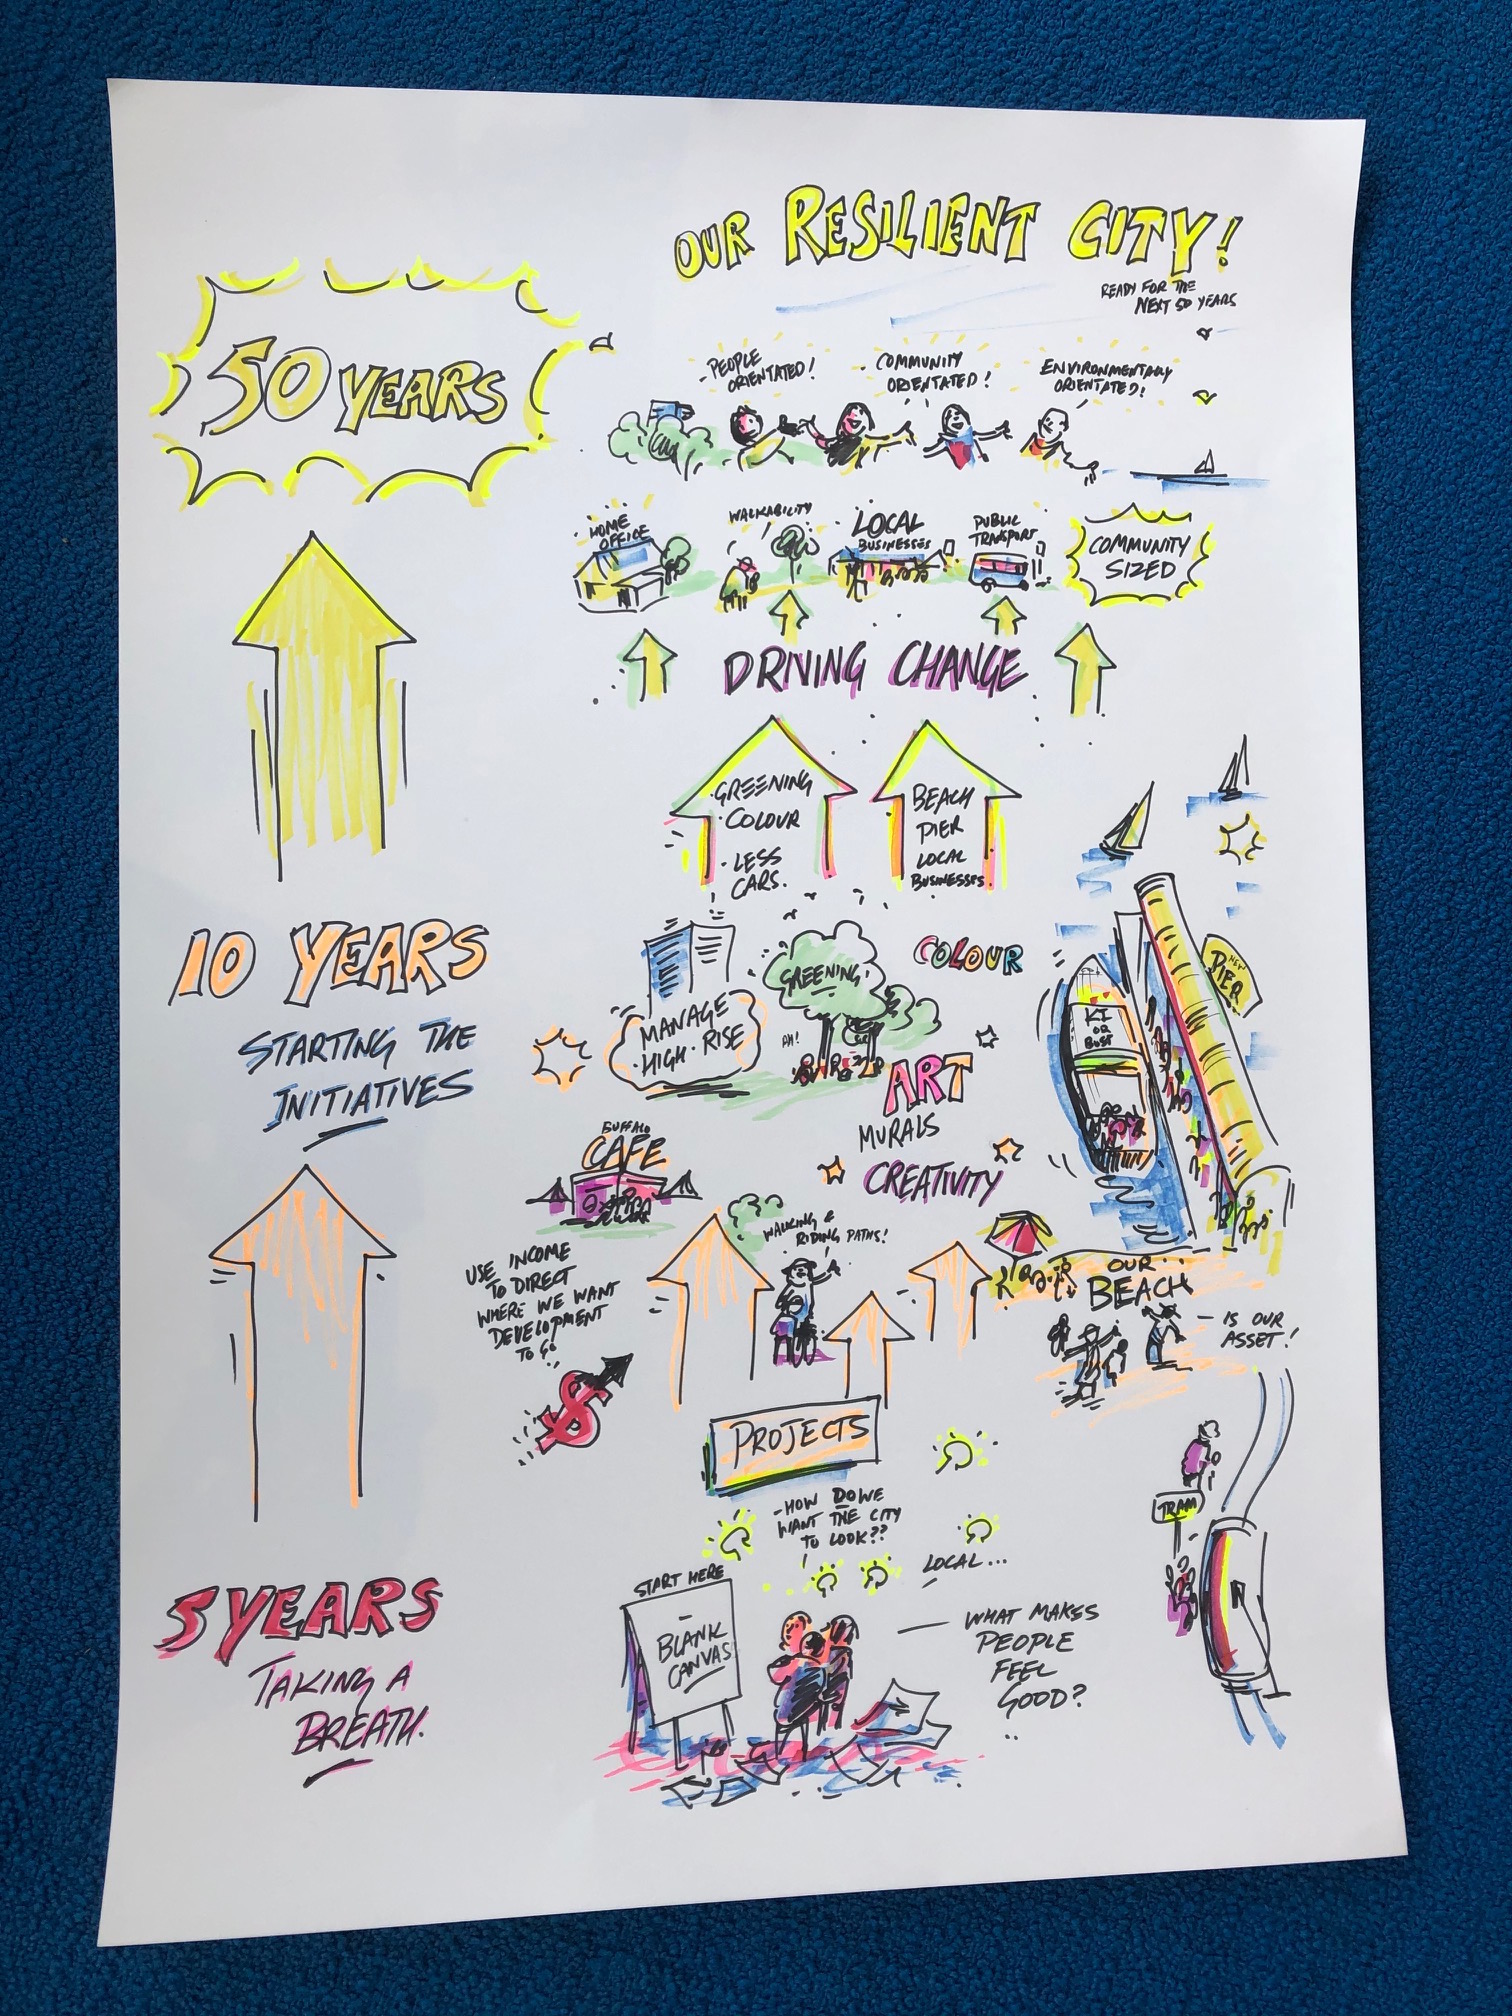 OUR RESILIENT CITY!
READY FOR THE
NEXT 50 YEARS
50 YEARS
- PEOPLE
ORIENTATED!
COMMUNITY
ORIENTATED!
ENVIRONMENTALLY
ORIENTATED!
HOME
OFFICE
WALKABILITY
LOCAL
BUSINESSES
PUBLIC
TRANSPORT
COMMUNITY
SIZED
DRIVING CHANGE
· GREENING
· COLOUR
· LESS
CARS.
BEACH
PIER
LOCAL
BUSINESSES.
10 YEARS
STARTING THE
INITIATIVES
MANAGE
HIGH·RISE
GREENING
AH!
COLOUR
ART
MURALS
CREATIVITY
NEW
PIER
KI
OR
BUST
BUFFALO
CAFE
USE INCOME
TO DIRECT
WHERE WE WANT
DEVELOPMENT
TO GO..
$
WALKING &
RIDING PATHS!
OUR...
BEACH
- IS OUR
ASSET!
PROJECTS
- HOW DO WE
WANT THE CITY
TO LOOK??
LOCAL...
TRAM
5 YEARS
TAKING A
BREATH.
START HERE
-
BLANK
CANVAS
- WHAT MAKES
PEOPLE
FEEL
GOOD?
..